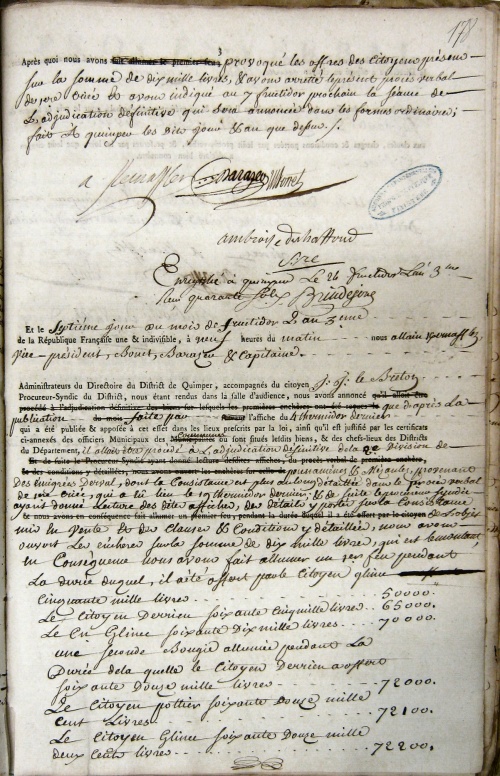 178
3
Après quoi nous avons fait allumer le premier feu, provoqué les offres des Citoyens présens
sur la somme de dix mille livres, & avons arretté le présent procès verbal
de 1ere Criée et avons indiqué au 7 fructidor prochain la séance de
L'adjudication définitive qui sera annoncée dans les formes ordinaires;
fait A quimper les dits jour & an que dessus /.
Barazer Bonet
ambroise deshaffond
Sre
Enregistré à quimper Le 26 fructidor L'an 3me
Reçu quarante sols Brindejonc
Et le Septieme jour du mois de fructidor L'an 3eme
de la République Française une & indivisible, à neuf heures du matin nous allain Kernaffle
Vice-président, Bonet, Barazer & Capitaine.
Administrateurs du Directoire du District de Quimper, accompagnés du citoyen J. J. le Breton
Procureur-Syndic du District, nous étant rendus dans la salle d'audience, nous avons annoncé qu'il alloit être
procédé à l'adjudication définitive des biens sur lesquels les premières enchères ont été reçues le que d'après La
publication du mois faite par l'affiche du 4 thermidor dernier
qui a été publiée & apposée à cet effet dans les lieux prescrits par la loi, ainsi qu'il est justifié par les certificats
ci-annexés des officiers Municipaux des Communes où sont situés lesdits biens, & des chefs-lieux des Districts
du Département, il alloit être procédé à L'adjudication définitive de la 2e Division de
Et de suite le Procureur Syndic ayant donné lecture desdites affiches, du procès verbal de premiere enchère,
& des conditions y détaillées, nous avons ouvert les enchères sur celle de & Mejaules, provenant
des émigrés Dresnal, dont la Consistance est plus au long détaillée dans le procès verbal
de 1ere criée, qui a eû lieu le 19 thermidor dernier, & de suite le procureur syndic
ayant donné Lecture des dites affiches, des détails y portés sur la Consistance
& nous avons en conséquence fait allumer un premier feu, pendant la durée duquel il a été offert par le citoyen de L'objet
mis en Vente & des Clauses & Conditions y détaillées, nous avons
ouvert Les enchères sur la somme de dix mille livres, qui est le montant,
en Conséquence nous avons fait allumer un 1er feu pendant
La durée duquel, il a été offert par le Citoyen glinec
Cinquante mille livres 50000.
Le Citoyen Derrien soixante Cinq mille livres 65000.
Le Cn Glinec soixante Dix mille livres 70000.
une seconde Bougie allumée pendant La
Durée de la quelle le Citoyen Derrien a offert
soixante Douze mille livres 72000.
Le Citoyen pottier soixante douze mille
cent Livres 72100.
Le Citoyen Glinec soixante Douze mille
deux Cents livres 72200.